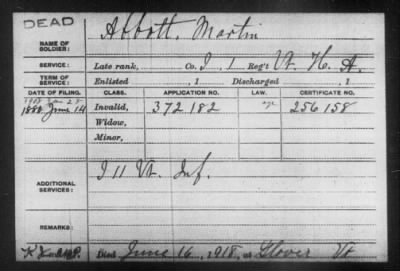 DEAD
Abbott, Martin
NAME OF SOLDIER:
SERVICE: Late rank, Co. I, 1 Reg't Vt. H. A.
TERM OF SERVICE: Enlisted , 1 Discharged , 1
DATE OF FILING. CLASS. APPLICATION NO. LAW. CERTIFICATE NO.
1880 June 14 Invalid, 372 182 256 158
Widow,
Minor,
ADDITIONAL SERVICES: I 11 Vt. Inf.
REMARKS:
Died June 16, 1918, at Glover Vt